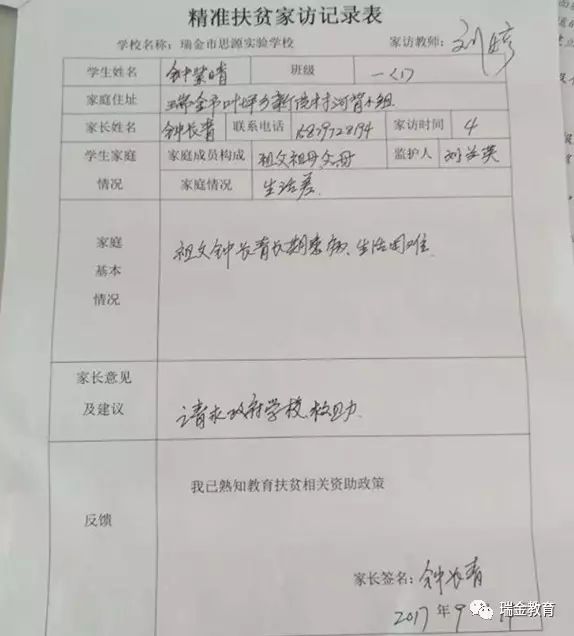 精准扶贫家访记录表
学校名称：瑞金市思源实验学校 家访教师：刘婷
学生姓名 钟紫晴 班级 一(1)
家庭住址 瑞金市叶坪乡新院村河背小组
家长姓名 钟长青 联系电话 家访时间 4
学生家庭 家庭成员构成 祖父祖母父母 监护人 刘兰英
情况 家庭情况 生活差.
家庭 祖父钟长青长期患病、生活困难.
基本
情况
家长意见
及建议 请求政府学校救助.
我已熟知教育扶贫相关资助政策
反馈
家长签名：钟长青
2017年9
瑞金教育